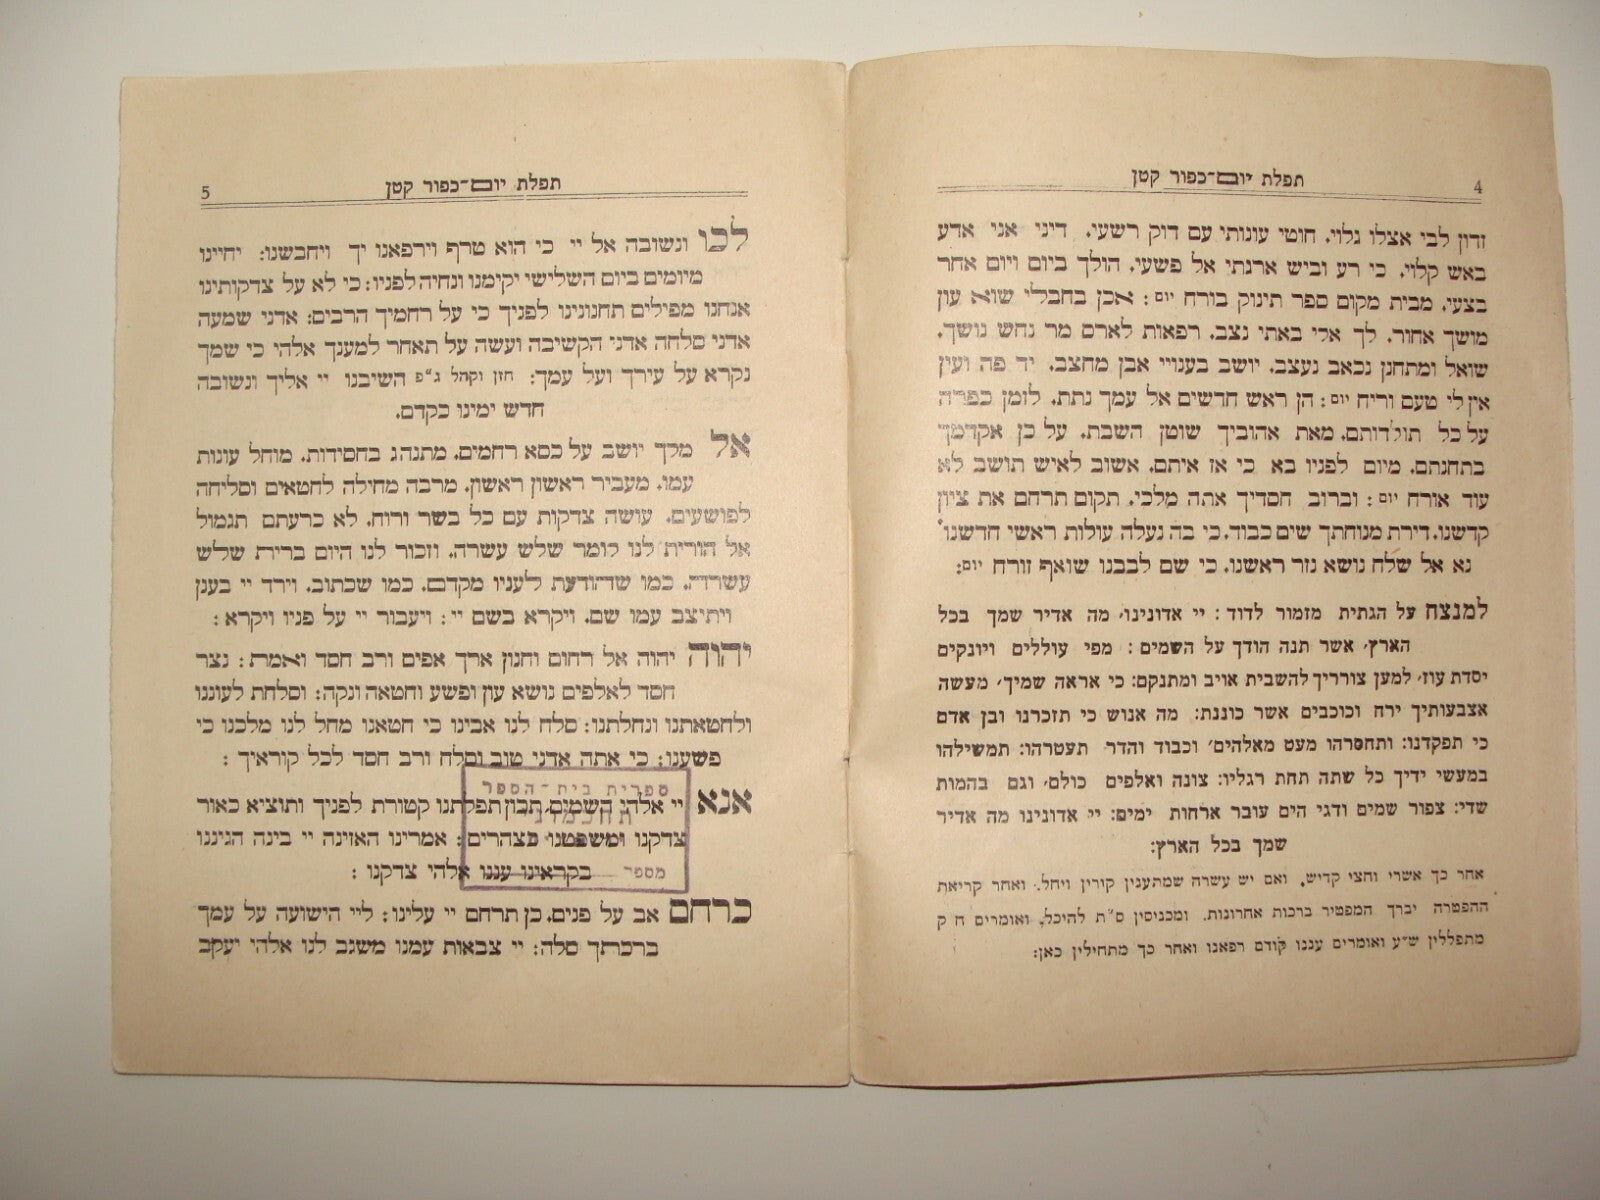 תפלת יום־כפור קטן
4
זדון לבי אצלו גלוי. חוטי עונותי עם דוק רשעי. דיני אני אדע
באש קלוי. כי רע וביש ארגתי אל פשעי. הולך ביום ויום אחר
בצעי. מבית מקום ספר תינוק בורח יום: אכן בחבלי שוא עון
מושך אחור. לך אלי באתי נצב. רפאות לארס מר נחש נושך.
שואל ומתחנן נכאב נעצב. יושב בענויי אבן מחצב. יד פה ועין
אין לי טעם וריח יום: הן ראש חדשים אל עמך נתת. לזמן כפרה
על כל תולדותם. מאת אהוביך שוטן השבת. על כן אקדמך
בתחנתם. מיום לפניו בא כי אז איתם. אשוב לאיש תושב לא
עוד אורח יום: וברוב חסדיך אתה מלכי. תקום תרחם את ציון
קדשנו. דירת מנוחתך שים כבוד. כי בה נעלה עולות ראשי חדשנו.
נא אל שלח נושא נזר ראשנו. כי שם לבבנו שואף זורח יום:
למנצח על הגתית מזמור לדוד: יי אדונינו, מה אדיר שמך בכל
הארץ, אשר תנה הודך על השמים: מפי עוללים ויונקים
יסדת עוז, למען צורריך להשבית אויב ומתנקם: כי אראה שמיך, מעשה
אצבעותיך ירח וכוכבים אשר כוננת: מה אנוש כי תזכרנו ובן אדם
כי תפקדנו: ותחסרהו מעט מאלהים, וכבוד והדר תעטרהו: תמשילהו
במעשי ידיך כל שתה תחת רגליו: צונה ואלפים כולם, וגם בהמות
שדי: צפור שמים ודגי הים עובר ארחות ימים: יי אדונינו מה אדיר
שמך בכל הארץ:
אחר כך אשרי וחצי קדיש. ואם יש עשרה שמתענין קורין ויחל. ואחר קריאת
ההפטרה יברך המפטיר ברכות אחרונות. ומכניסין ס״ת להיכל, ואומרים ח ק
מתפללין ש״ע ואומרים עננו קודם רפאנו ואחר כך מתחילין כאן:
תפלת יום־כפור קטן
5
לכו ונשובה אל יי כי הוא טרף וירפאנו יך ויחבשנו: יחיינו
מיומים ביום השלישי יקימנו ונחיה לפניו: כי לא על צדקותינו
אנחנו מפילים תחנונינו לפניך כי על רחמיך הרבים: אדני שמעה
אדני סלחה אדני הקשיבה ועשה על תאחר למענך אלהי כי שמך
נקרא על עירך ועל עמך: חזן וקהל ג״פ השיבנו יי אליך ונשובה
חדש ימינו כקדם.
אל מלך יושב על כסא רחמים. מתנהג בחסידות. מוחל עונות
עמו. מעביר ראשון ראשון. מרבה מחילה לחטאים וסליחה
לפושעים. עושה צדקות עם כל בשר ורוח. לא כרעתם תגמול
אל הורית לנו לומר שלש עשרה. וזכור לנו היום ברית שלש
עשרה. כמו שהודעת לעניו מקדם. כמו שכתוב. וירד יי בענן
ויתיצב עמו שם. ויקרא בשם יי: ויעבור יי על פניו ויקרא:
יהוה יהוה אל רחום וחנון ארך אפים ורב חסד ואמת: נצר
חסד לאלפים נושא עון ופשע וחטאה ונקה: וסלחת לעוננו
ולחטאתנו ונחלתנו: סלח לנו אבינו כי חטאנו מחל לנו מלכנו כי
פשענו: כי אתה אדני טוב וסלח ורב חסד לכל קוראיך:
אנא יי אלהי השמים, תכון תפלתנו קטורת לפניך ותוציא כאור
צדקנו ומשפטנו כצהרים: אמרינו האזינה יי בינה הגיגנו
בקראינו עננו אלהי צדקנו:
כרחם אב על פנים. כן תרחם יי עלינו: ליי הישועה על עמך
ברכתך סלה: יי צבאות עמנו משגב לנו אלהי יעקב
ספרית בית-הספר
תחכמוני
מספר